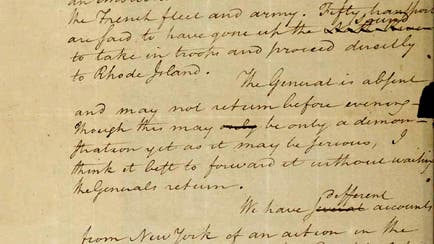 the French fleet and army. Fifty transports
are said to have gone up the Sound
to take in troops and proceed directly
to Rhode Island.
The General is absent
and may not return before evening
Though this may only be only a demon
stration yet as it may be serious, I
think it best to forward it without waiting
the Generals return.
different
We have several accounts
from New York of an action in the